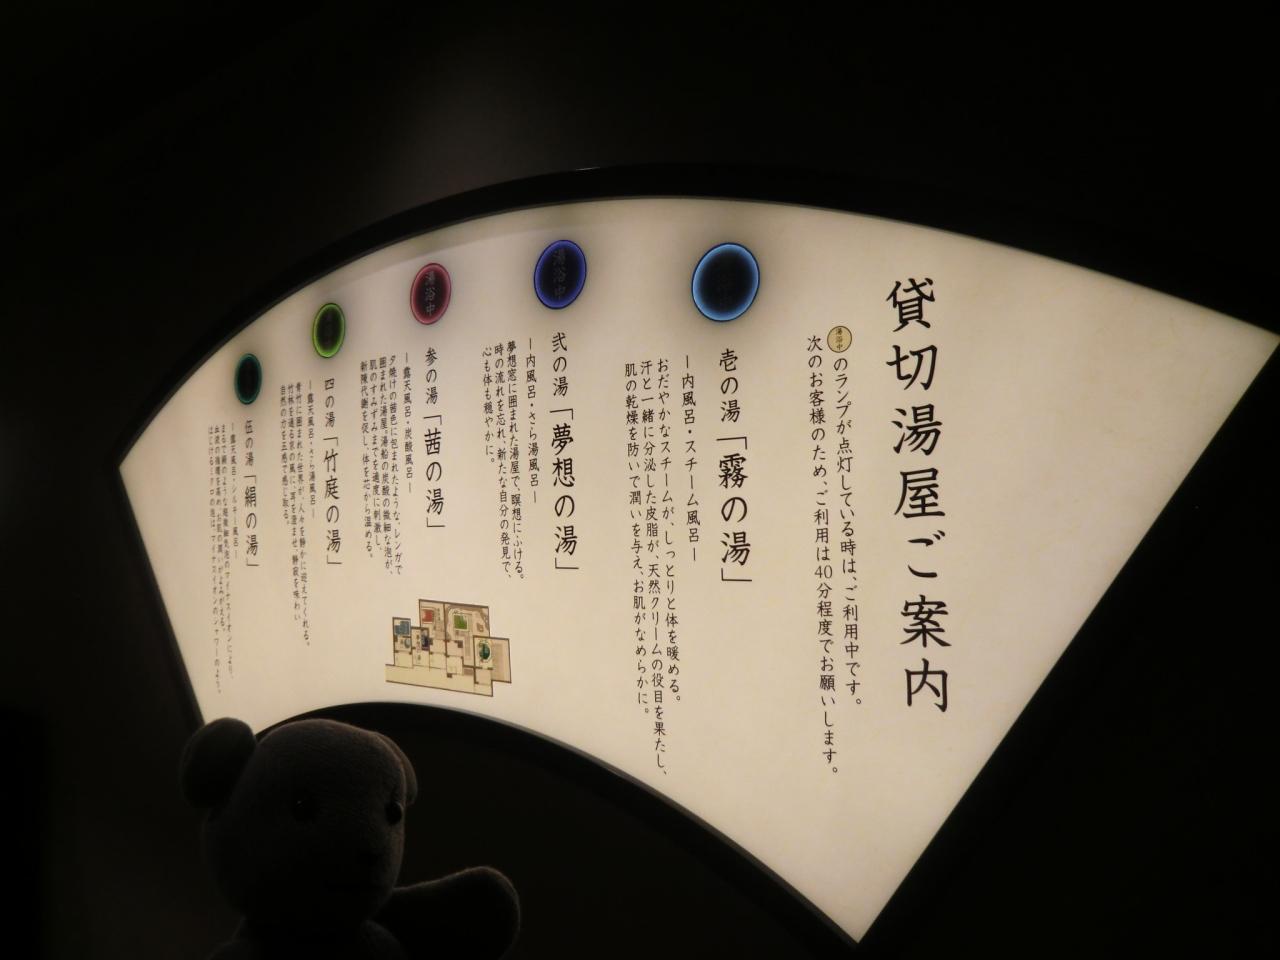 貸切湯屋ご案内
湯浴中のランプが点灯している時は、ご利用中です。
次のお客様のため、ご利用は40分程度でお願いします。
壱の湯「霧の湯」
―内風呂・スチーム風呂―
おだやかなスチームが、しっとりと体を暖める。
汗と一緒に分泌した皮脂が、天然クリームの役目を果たし、
肌の乾燥を防いで潤いを与え、お肌がなめらかに。
湯浴中
弐の湯「夢想の湯」
―内風呂・さら湯風呂―
夢想窓に囲まれた湯屋で、瞑想にふける。
時の流れを忘れ、新たな自分の発見で、
心も体も穏やかに。
湯浴中
参の湯「茜の湯」
―露天風呂・炭酸風呂―
夕焼けの茜色に包まれたような、レンガで
囲まれた湯屋。湯船の炭酸の微細な泡が、
肌のすみずみまでを適度に刺激し、
新陳代謝を促し、体を芯から温める。
四の湯「竹庭の湯」
―露天風呂・さら湯風呂―
青竹に囲まれた世界が、人々を静かに迎えてくれる。
竹林を通る京の風に、耳を澄ませ、静寂を味わい
自然の力を五感で感じ取る。
伍の湯「絹の湯」
―露天風呂・シルキー風呂―
まるで絹のような超微細気泡のマイナスイオンにより、
血液の循環を高め、お肌の潤いがよみがえる。
はじけるミクロの泡は、マイナスイオンのシャワーのよう。